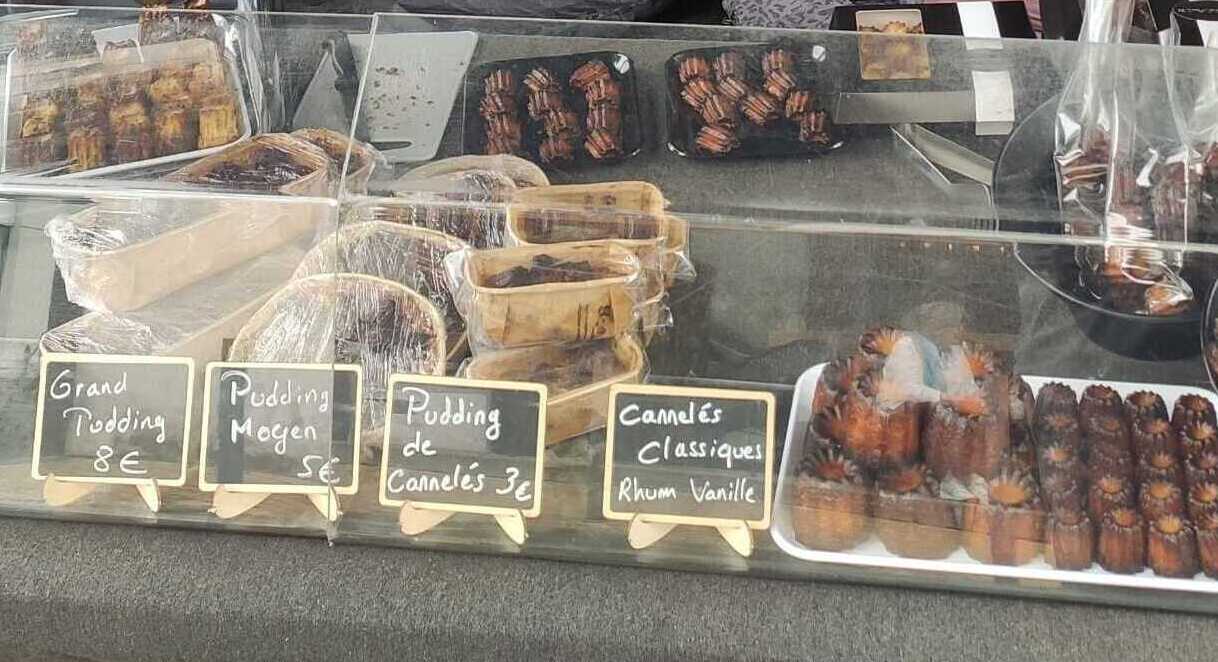 Grand
Pudding
8€
Pudding
Moyen
5€
Pudding
de
Cannelés 3€
Cannelés
Classiques
Rhum Vanille